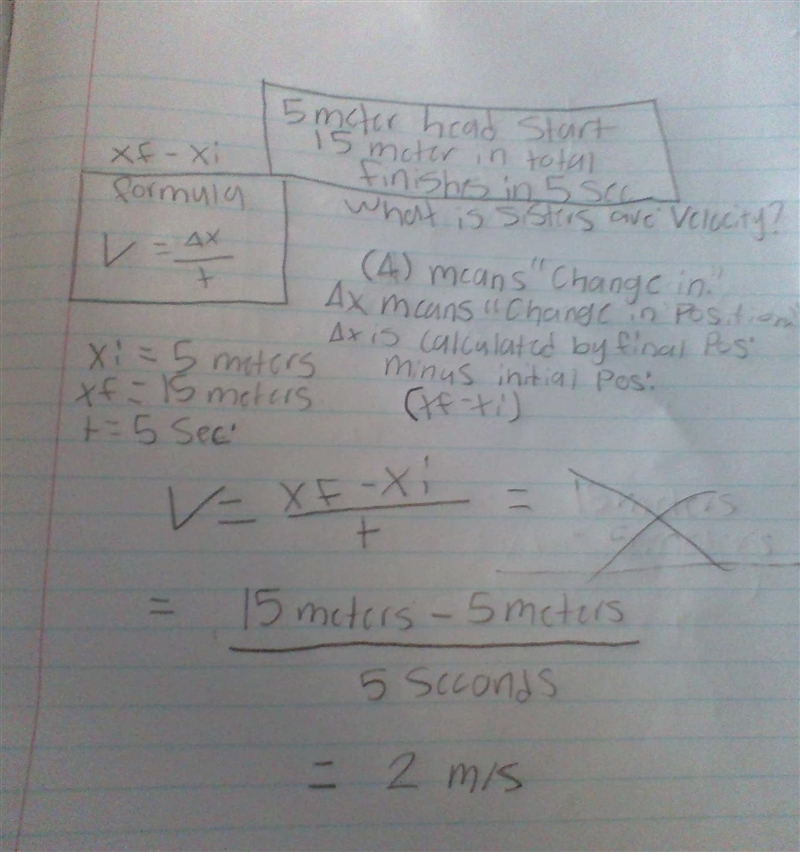 5 meter head start
15 meter in total
finishes in 5 sec
xf - xi
formula
V = Δx
t
What is sisters ave velocity?
(Δ) means "Change in."
Δx means "Change in Position"
Δx is calculated by final Pos.
minus initial Pos.
(xf-xi)
xi = 5 meters
xf = 15 meters
t = 5 Sec.
V = xf - xi =
t
= 15 meters - 5 meters
5 Seconds
= 2 m/s